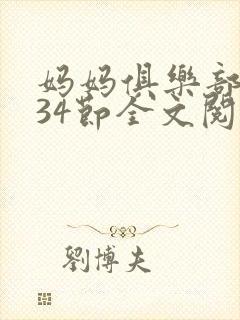 妈妈俱樂部
34节全文閱
劉博夫